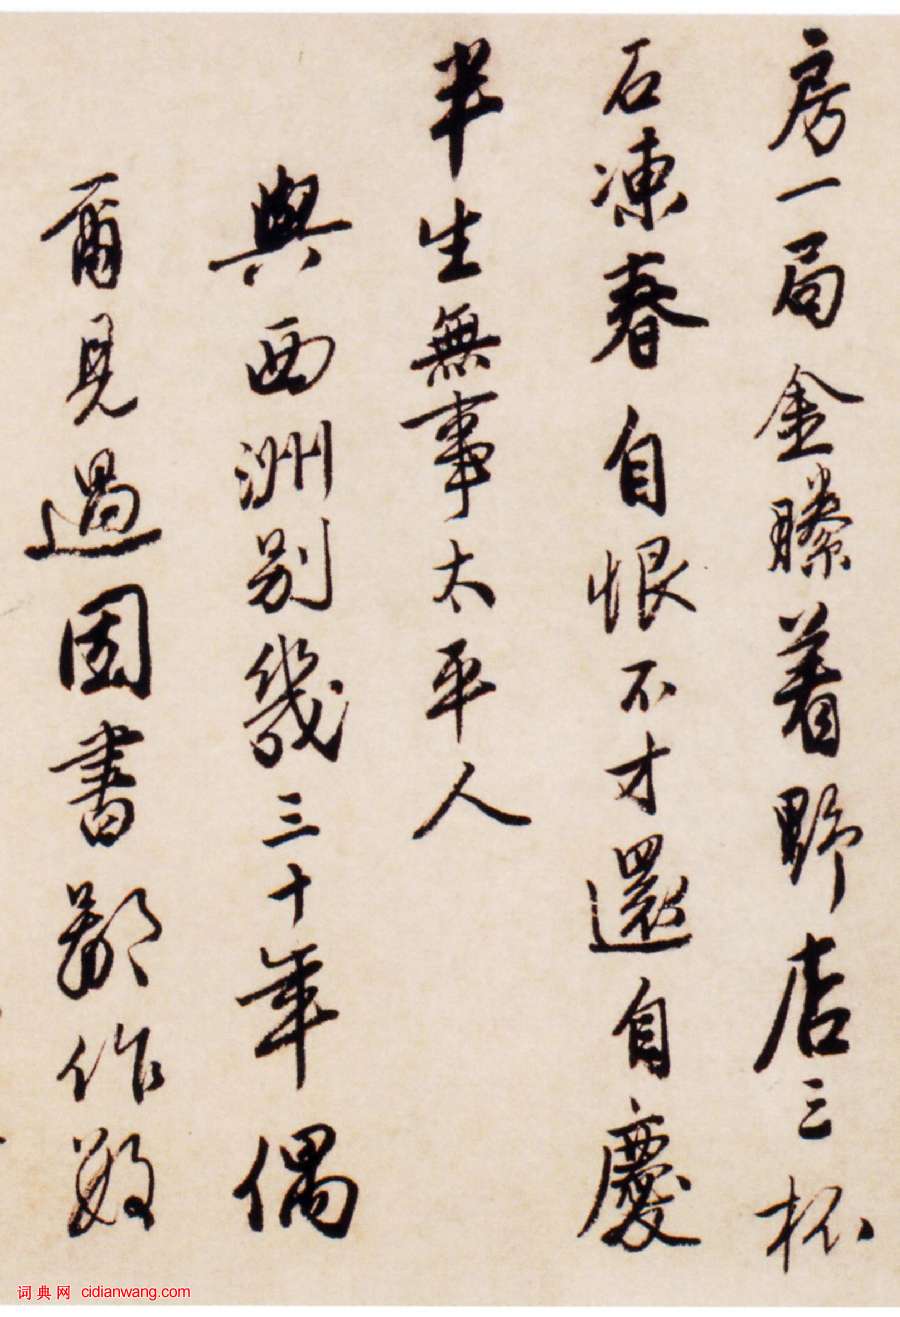 房一局金縢着野店三杯
石凍春自恨不才還自慶
半生無事太平人
與西洲別幾三十年偶
爾見過因書鄙作數
词典网 cidianwang.com